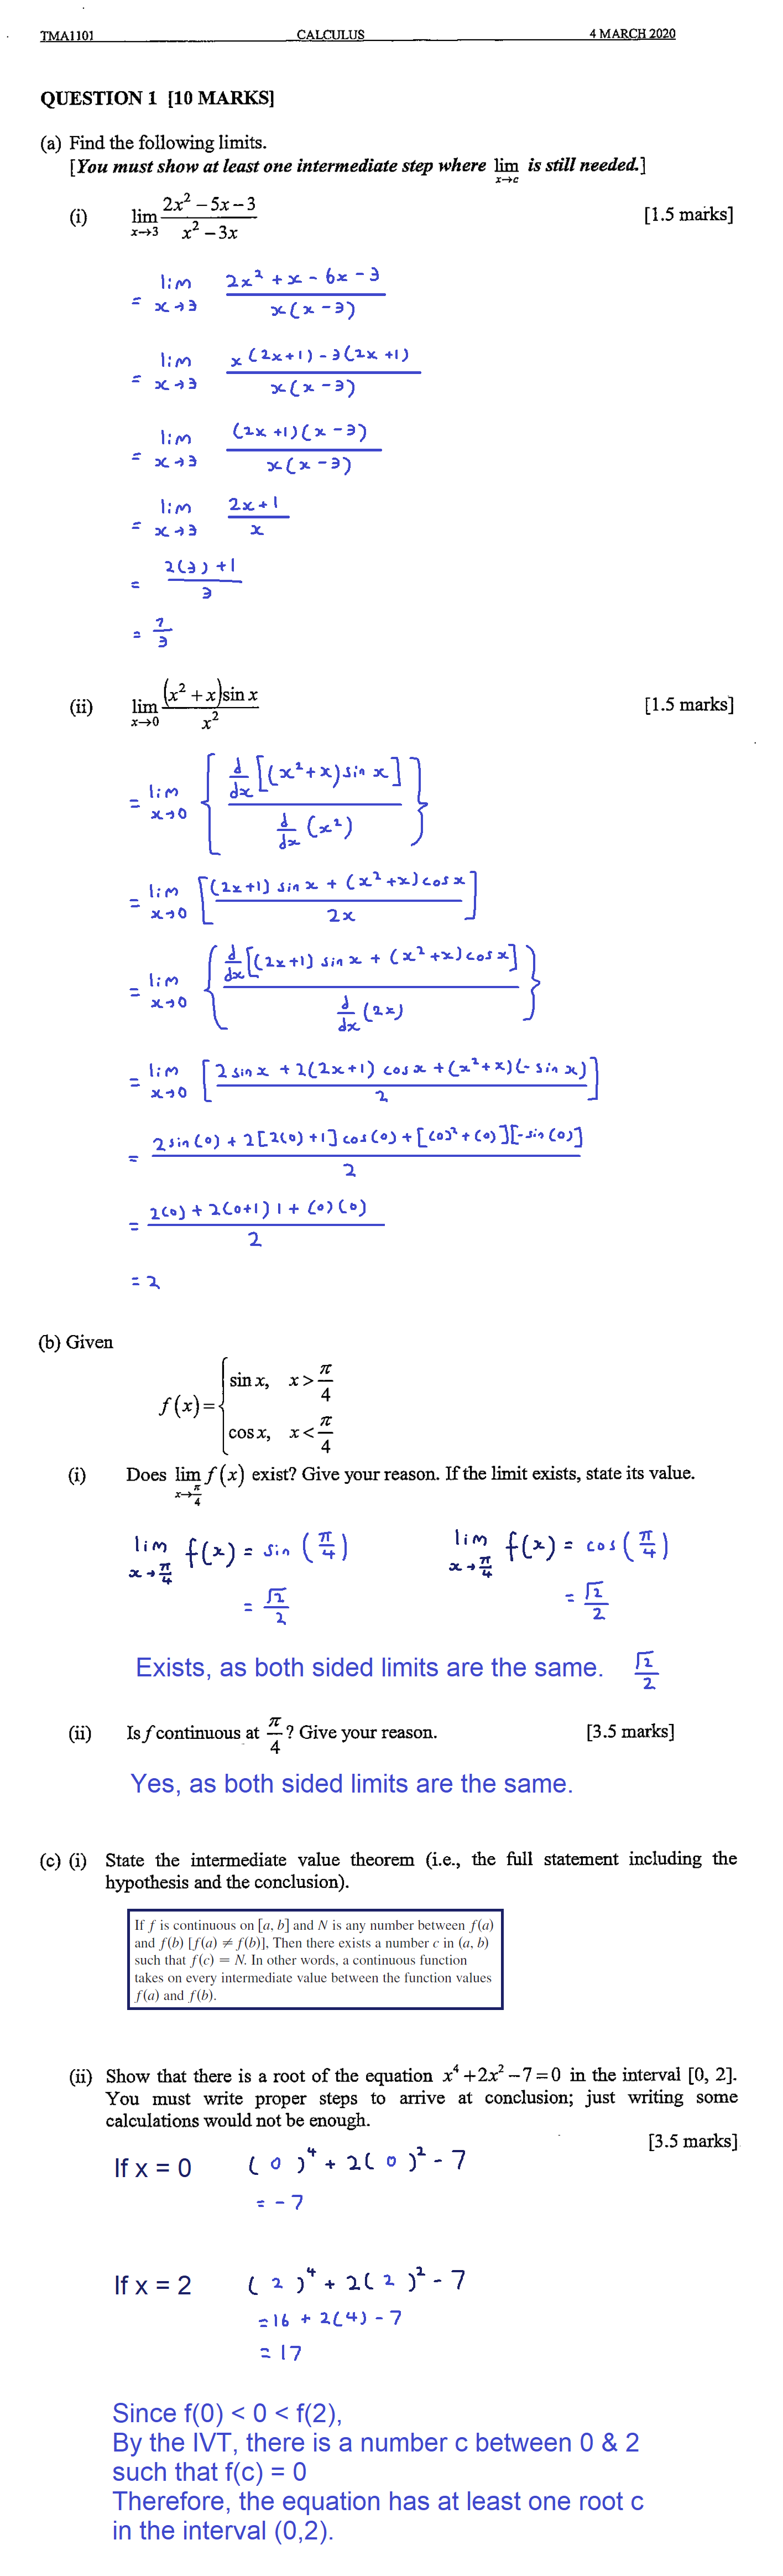 TMA1101 CALCULUS 4 MARCH 2020
QUESTION 1 [10 MARKS]
(a) Find the following limits.
[You must show at least one intermediate step where lim x→c is still needed.]
(i) lim x→3 (2x² – 5x – 3)/(x² – 3x) [1.5 marks]
= lim x→3 (2x² + x – 6x – 3)/(x(x – 3))
= lim x→3 (x(2x+1) – 3(2x+1))/(x(x – 3))
= lim x→3 ((2x+1)(x – 3))/(x(x – 3))
= lim x→3 (2x+1)/x
= (2(3)+1)/3
= 7/3
(ii) lim x→0 ((x² + x)sin x)/x² [1.5 marks]
= lim x→0 { d/dx[(x²+x)sin x] / d/dx(x²) }
= lim x→0 [((2x+1) sin x + (x²+x)cos x)/2x]
= lim x→0 { d/dx[(2x+1) sin x + (x²+x)cos x] / d/dx(2x) }
= lim x→0 [(2 sin x + 2(2x+1) cos x + (x²+x)(- sin x))/2]
= (2 sin(0) + 2[2(0)+1] cos(0) + [(0)²+(0)][-sin(0)])/2
= (2(0) + 2(0+1)1 + (0)(0))/2
= 2
(b) Given
f(x) = { sin x, x > π/4
cos x, x < π/4
(i) Does lim x→π/4 f(x) exist? Give your reason. If the limit exists, state its value.
lim x→π/4 f(x) = sin(π/4) lim x→π/4 f(x) = cos(π/4)
= √2/2 = √2/2
Exists, as both sided limits are the same. √2/2
(ii) Is f continuous at π/4? Give your reason. [3.5 marks]
Yes, as both sided limits are the same.
(c) (i) State the intermediate value theorem (i.e., the full statement including the
hypothesis and the conclusion).
If f is continuous on [a, b] and N is any number between f(a)
and f(b) [f(a) ≠ f(b)], Then there exists a number c in (a, b)
such that f(c) = N. In other words, a continuous function
takes on every intermediate value between the function values
f(a) and f(b).
(ii) Show that there is a root of the equation x⁴ + 2x² – 7 = 0 in the interval [0, 2].
You must write proper steps to arrive at conclusion; just writing some
calculations would not be enough.
[3.5 marks]
If x = 0 (0)⁴ + 2(0)² - 7
= - 7
If x = 2 (2)⁴ + 2(2)² - 7
= 16 + 2(4) - 7
= 17
Since f(0) < 0 < f(2),
By the IVT, there is a number c between 0 & 2
such that f(c) = 0
Therefore, the equation has at least one root c
in the interval (0,2).